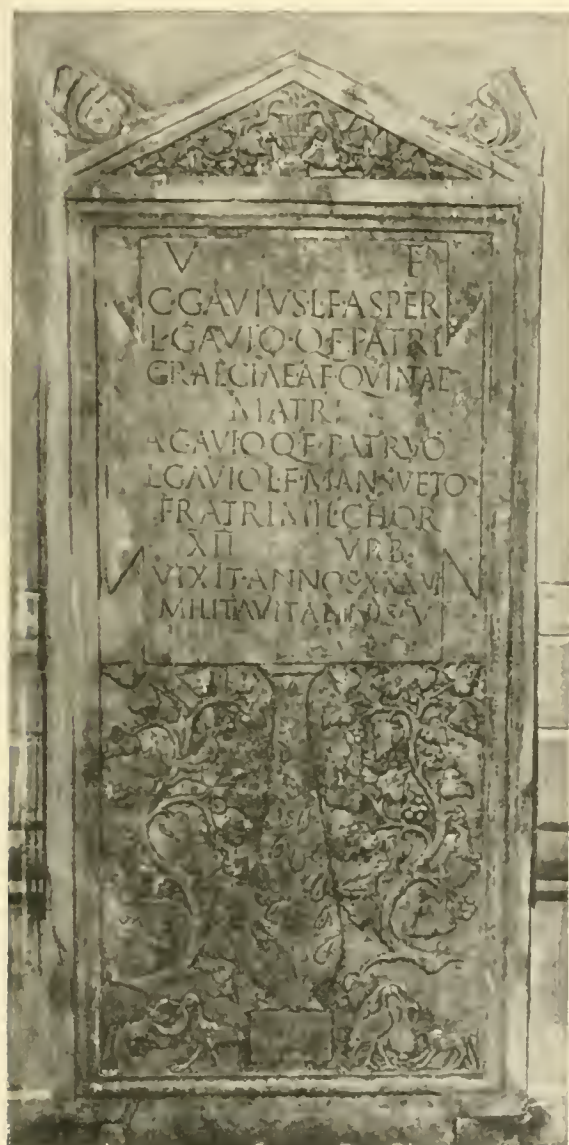 V F
C·GAVIVS·L·F·ASPER
L·GAVIO·Q·F·PATRI
GRAECINAE·A·F·QVINAE
MATRI
A·GAVIO·Q·F·PATRVO
L·GAVIO·L·F·MANSVETO
FRATRI·MIL·CHOR
XII VRB·
VIXIT·ANNOS·XXXVI
MILITAVIT·ANNOS